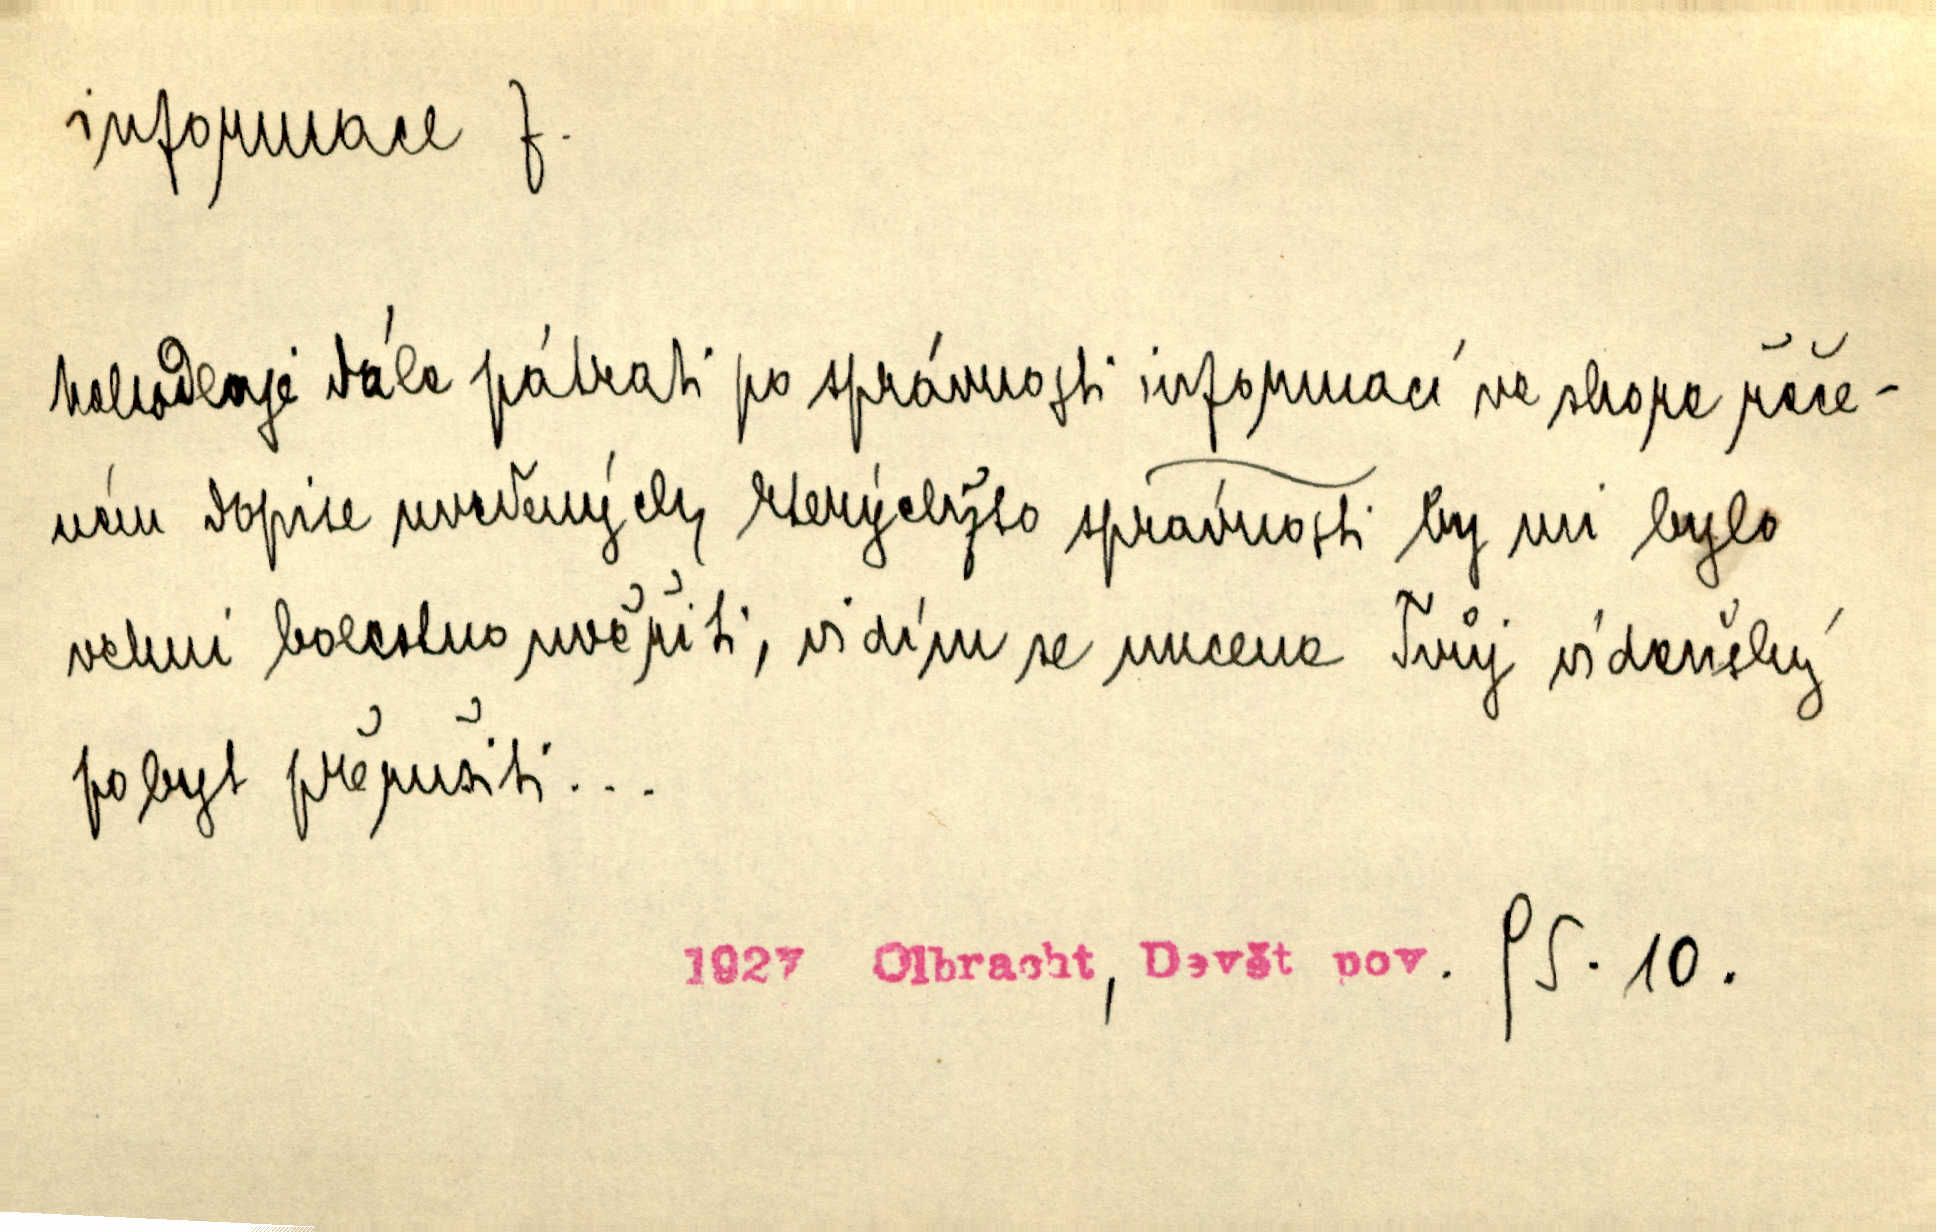 informace f.
Nehodlaje dále pátrati po správnosti informací ve shora řeče-
ném dopise uvedených, kterýchžto správnosti by mi bylo
velmi bolestno uvěřiti, vidím se nucena Tvůj vídeňský
pobyt přerušiti...
1927 Olbracht, Devět pov. PS. 10.